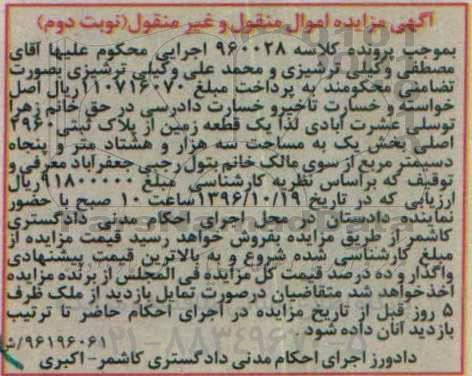 آگهی مزایده اموال منقول و غیر منقول (نوبت دوم)
بموجب پرونده کلاسه ۹۶۰۰۲۸ اجرایی محکوم علیها آقای
مصطفی وکیلی ترشیزی و محمد علی وکیلی ترشیزی بصورت
تضامنی محکومند به پرداخت مبلغ ۱۱۰۷۱۶۰۷۰ ریال اصل
خواسته و خسارت تاخیر و خسارت دادرسی در حق خانم زهرا
توسلی عشرت آبادی لذا یک قطعه زمین از پلاک ثبتی ۲۹۶۰
اصلی بخش یک به مساحت سه هزار و هشتاد متر و پنجاه
دسیمتر مربع از سوی مالک خانم بتول رجبی جعفرآباد معرفی و
توقیف که براساس نظریه کارشناسی مبلغ ۹۱۸۰۰۰۰۰۰ ریال
ارزیابی که در تاریخ ۱۳۹۶/۱۰/۱۹ ساعت ۱۰ صبح با حضور
نماینده دادستان در محل اجرای احکام مدنی دادگستری
کاشمر از طریق مزایده بفروش خواهد رسید قیمت مزایده از
مبلغ کارشناسی شده شروع و به بالاترین قیمت پیشنهادی
واگذار و ده درصد قیمت کل مزایده فی المجلس از برنده مزایده
اخذ خواهد شد متقاضیان درصورت تمایل بازدید از ملک ظرف
۵ روز قبل از تاریخ مزایده در اجرای احکام حاضر تا ترتیب
بازدید آنان داده شود.
۹۶۱۹۶۰۶۱/ش
دادورز اجرای احکام مدنی دادگستری کاشمر - اکبری